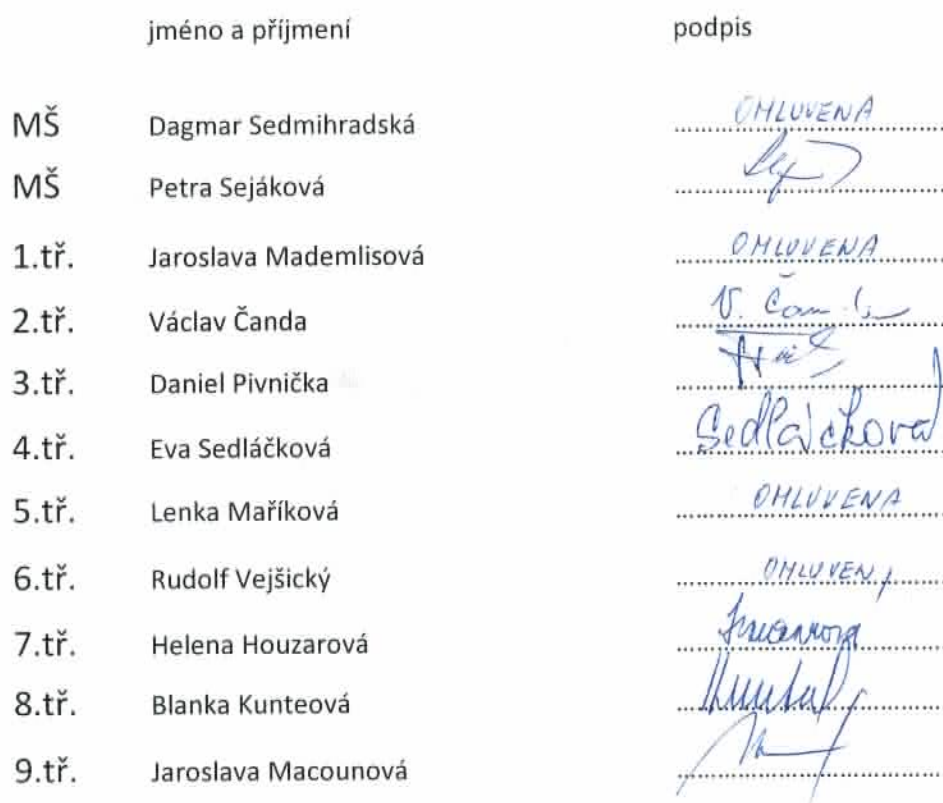 jméno a příjmení podpis
MŠ Dagmar Sedmihradská OMLUVENA
MŠ Petra Sejáková
1.tř. Jaroslava Mademlisová OMLUVENA
2.tř. Václav Čanda V. Čanda
3.tř. Daniel Pivnička
4.tř. Eva Sedláčková Sedláčková
5.tř. Lenka Maříková OMLUVENA
6.tř. Rudolf Vejšický OMLUVEN
7.tř. Helena Houzarová
8.tř. Blanka Kunteová
9.tř. Jaroslava Macounová